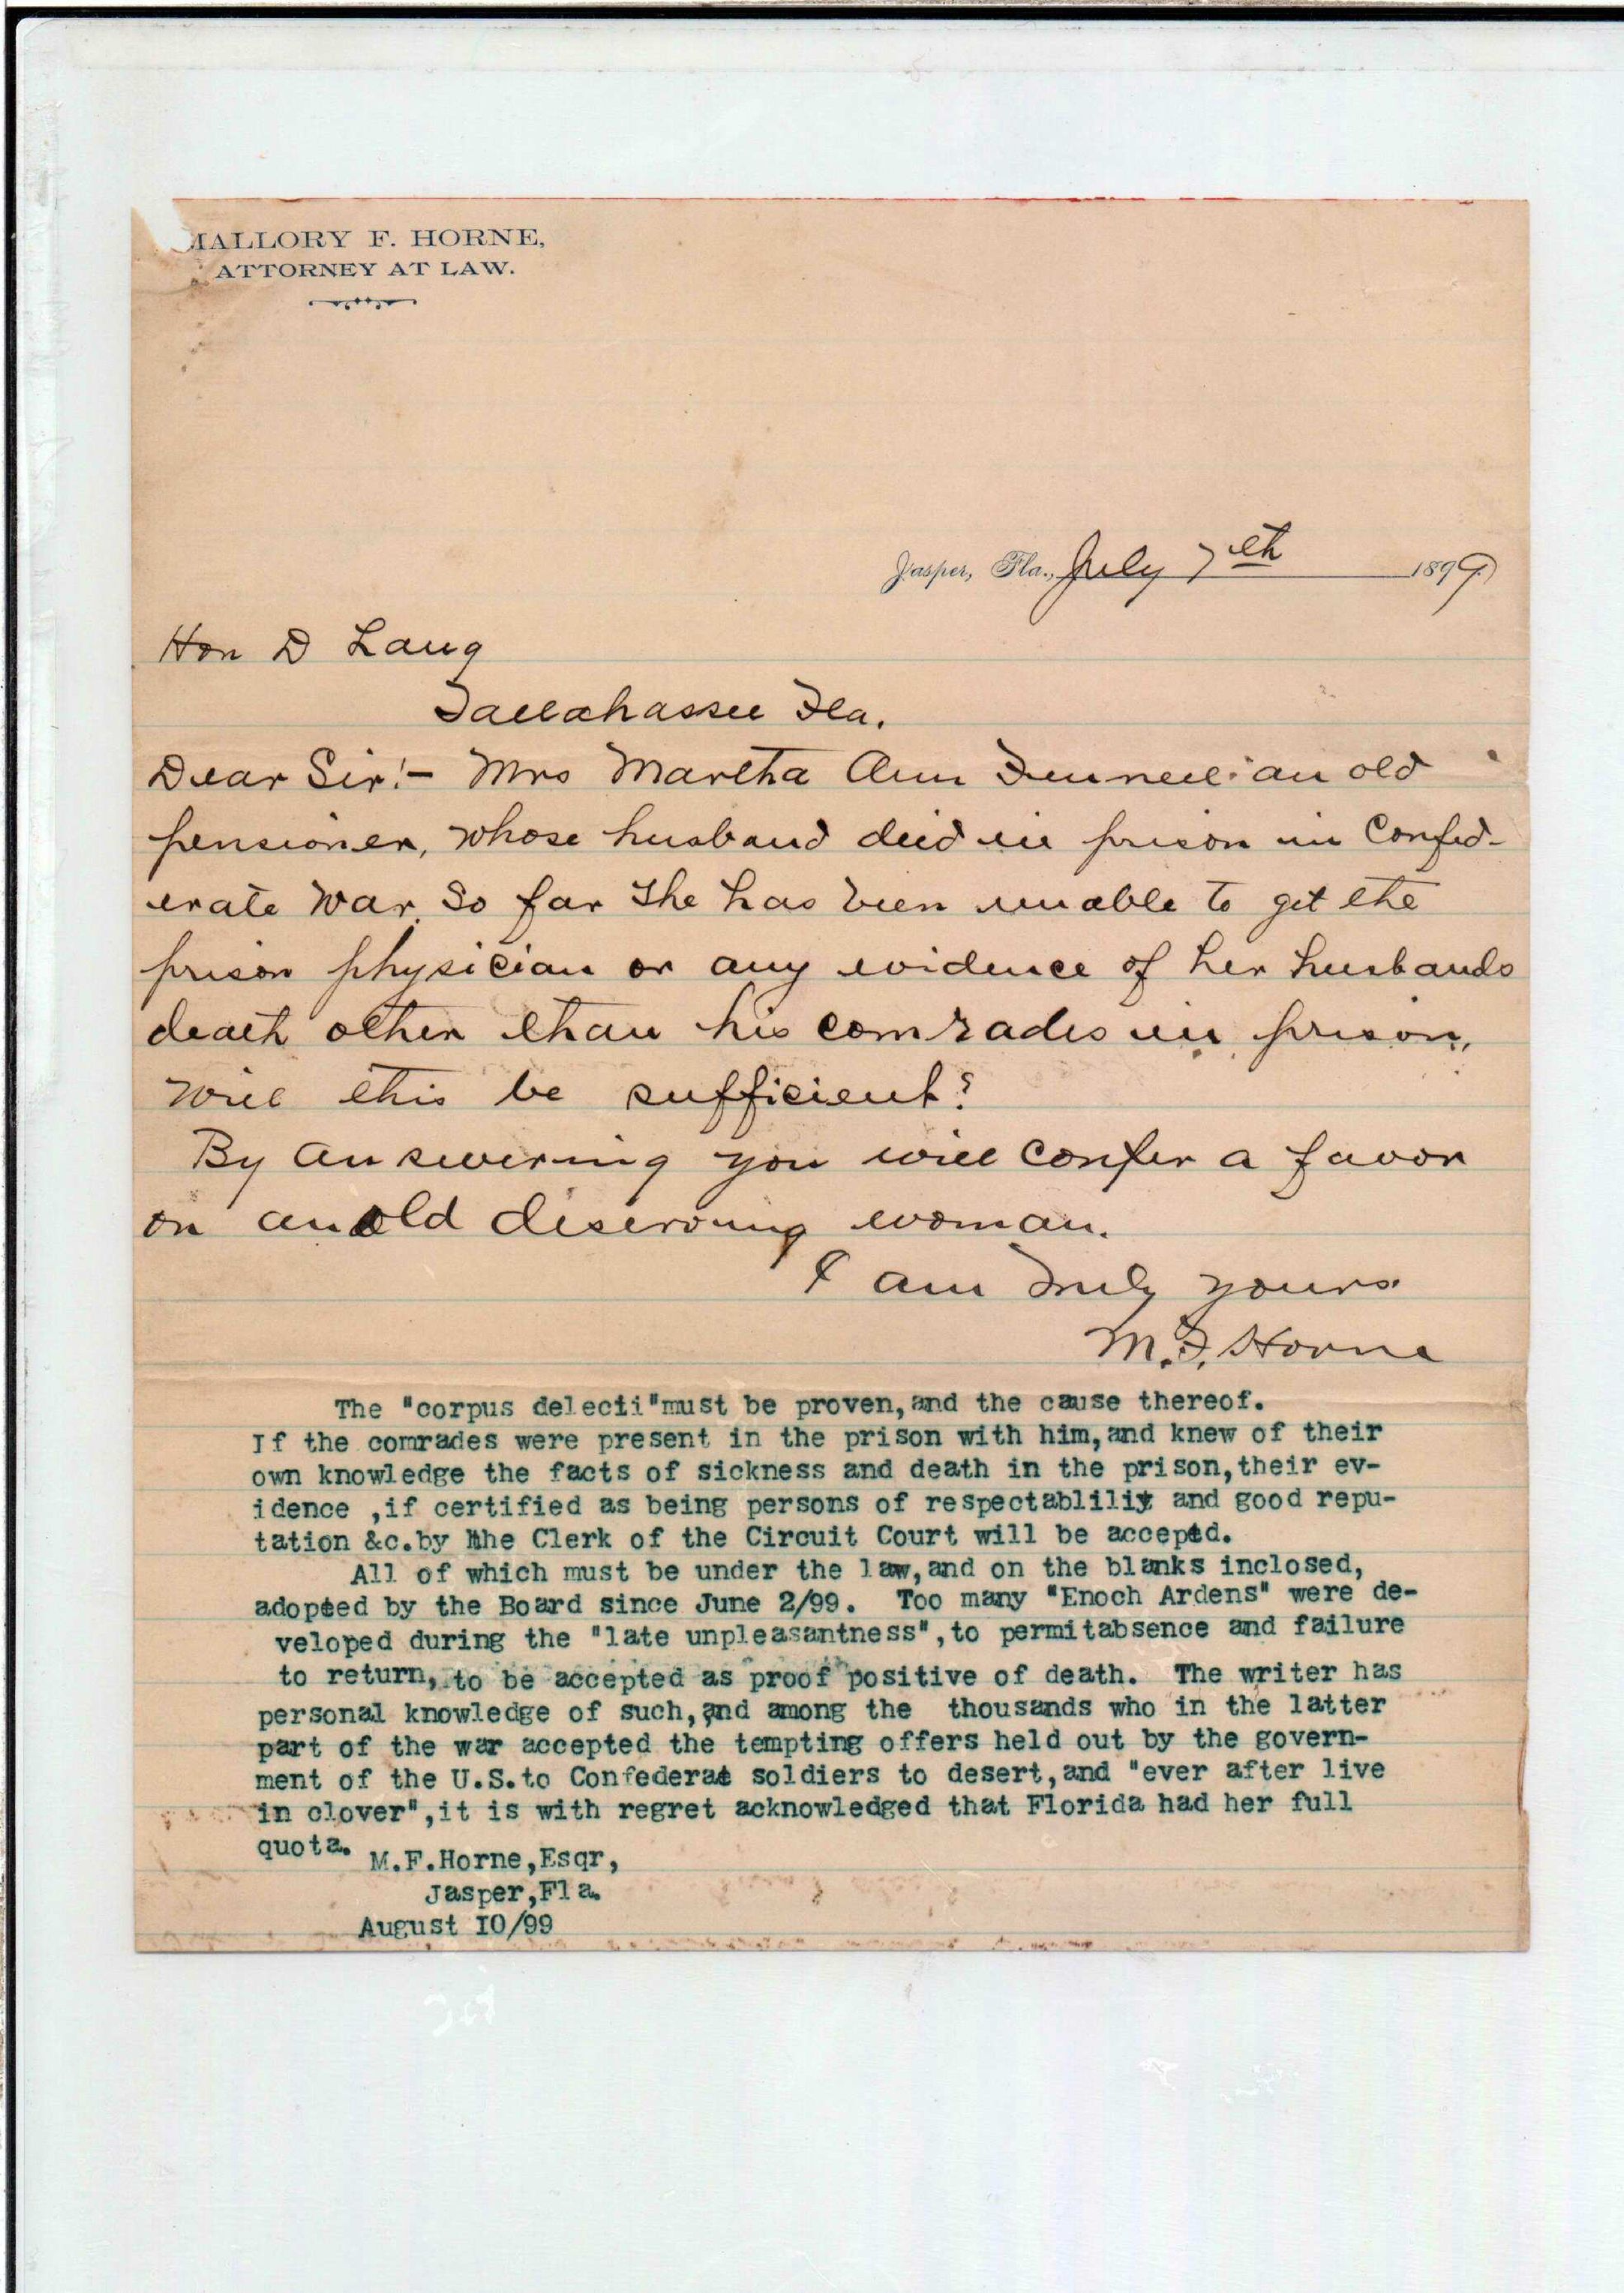 MALLORY F. HORNE,
ATTORNEY AT LAW.
Jasper, Fla., July 7th 1899
Hon D Lang
Tallahassee Fla.
Dear Sir:- Mrs Martha Ann Funnell an old
pensioner, whose husband died in prison in Confed-
erate War. So far she has been unable to get the
prison physician or any evidence of her husbands
death other than his comrades in prison,
will this be sufficient?
By answering you will confer a favor
on an old deserving woman.
I am Truly yours
M. F. Horne
The "corpus delecti"must be proven,and the cause thereof.
If the comrades were present in the prison with him,and knew of their
own knowledge the facts of sickness and death in the prison,their ev-
idence ,if certified as being persons of respectablliiy and good repu-
tation &c.by hhe Clerk of the Circuit Court will be accepted.
All of which must be under the law,and on the blanks inclosed,
adopted by the Board since June 2/99. Too many "Enoch Ardens" were de-
veloped during the "late unpleasantness",to permitabsence and failure
to return, to be accepted as proof positive of death. The writer has
personal knowledge of such,and among the thousands who in the latter
part of the war accepted the tempting offers held out by the govern-
ment of the U.S.to Confederat soldiers to desert,and "ever after live
in clover",it is with regret acknowledged that Florida had her full
quota.
M.F.Horne,Esqr,
Jasper,Fla.
August IO/99